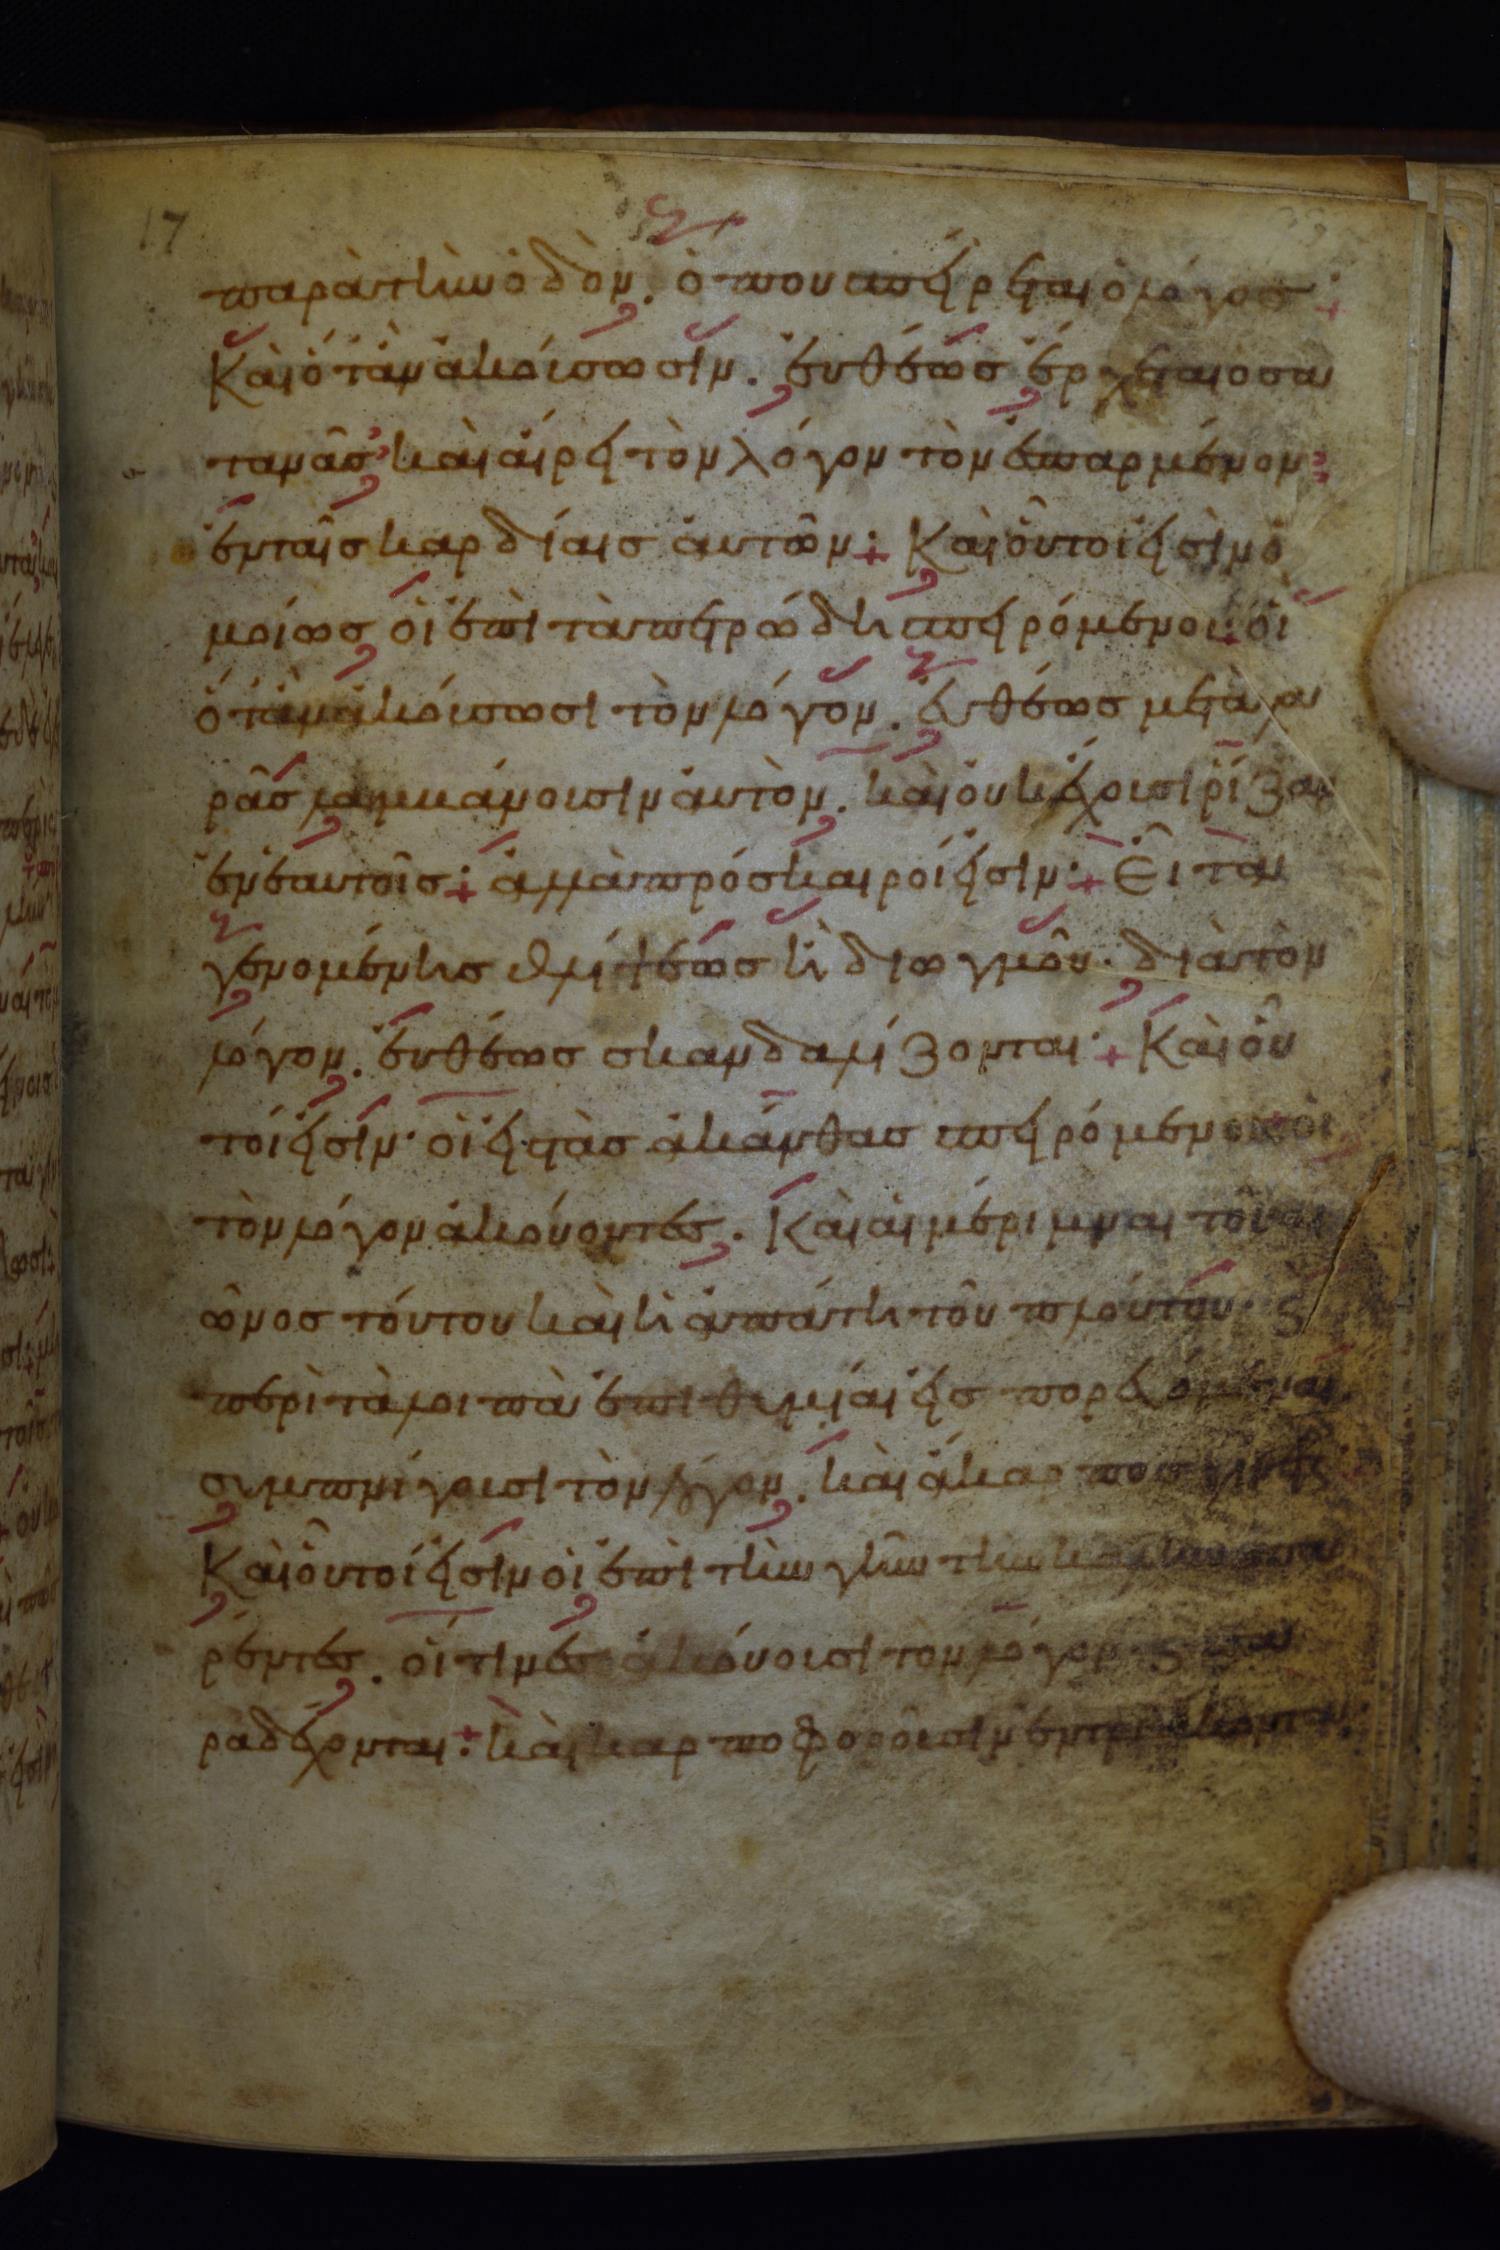 17
παρὰ τὴν ὁδὸν. ὅπου σπείρεται ὁ λόγοσ:
Καὶ ὅτὰν ἀκούσωσιν. ἐυθέωσ ἔρχεται ὁ σα
τανᾶσ καὶ αἴρει τὸν λόγον τὸν ἐσπαρμένον
ἐν ταῖσ καρδίαισ ἀυτῶν: Καὶ οὗτοί εἰσὶν ὁ
μοίωσ οἱ ἐπὶ τὰ πετρώδη σπειρόμενοι: οἱ
ὅτὰν ἀκούσωσι τὸν λόγον. ἐυθέωσ μετὰ χα
ρᾶσ λαμβάνουσιν ἀυτὸν. καὶ ὀυκ ἔχουσι ῥίζαν
ἐν ἑαυτοῖσ: ἀλλὰ πρόσκαιροί εἰσιν: Εἶτα
γενομένησ θλίψεωσ ἢ διωγμοῦ: διὰ τὸν
λόγον. ἐυθέωσ σκανδαλίζονται: Καὶ οὗ
τοί εἰσὶν· οἱ εἰσ τὰσ ἀκάνθασ σπειρόμενοι: οἱ
τὸν λόγον ἀκούοντέσ. Καὶ αἱ μέριμναι τοῦ αι
ῶνοσ τούτου καὶ ἡ ἀπάτη τοῦ πλούτου· ϛ
περὶ τὰ λοιπὰ ἐπιθυμίαι εἰσπορευόμεναι
συμπνίγουσι τὸν λόγον. καὶ ἄκαρποσ γίνεται
Καὶ οὗτοί εἰσὶν οἱ ἐπὶ τὴν γῆν τὴν καλὴν σπα
ρέντέσ. οἵτινέσ ἀκούουσι τὸν λόγον ϛ πα
ραδέχονται: καὶ καρποφοροῦσιν ἐν τριάκοντα: